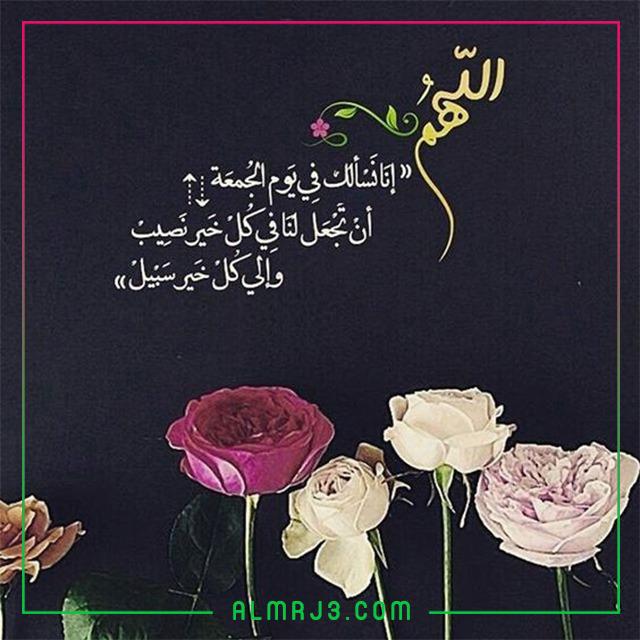 اللّهُم
« إنا نَسألك فِي يَوم الجُمعَة
أنْ تَجْعَل لنَا في كُلْ خَير نَصِيبْ
وَإلي كُلْ خَير سَبْيلْ »
ALMRJ3.COM